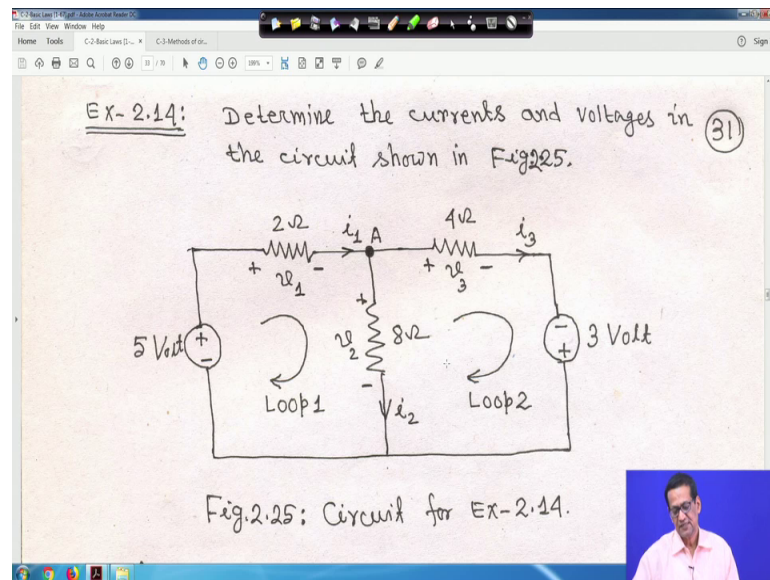 C-2-Basic Laws [1-67].pdf - Adobe Acrobat Reader DC
File Edit View Window Help
Home Tools C-2-Basic Laws [1-... × C-3-Methods of cir...
Sign
33 / 70
Ex-2.14: Determine the currents and voltages in 31
the circuit shown in Fig 2.25.
2Ω i1 A 4Ω i3
+ v1 - + v3 -
+
5 Volt + - v2 8Ω - + 3 Volt
-
Loop1 i2 Loop2
Fig.2.25: Circuit for Ex-2.14.